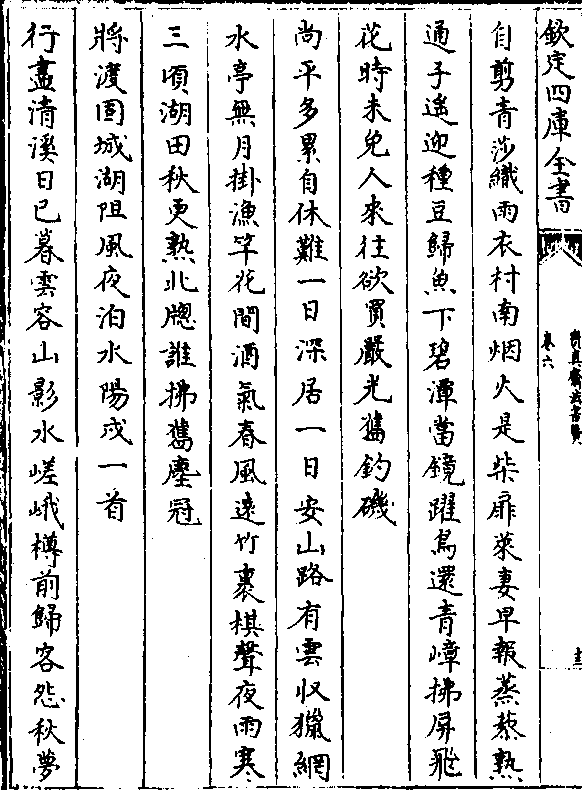 欽定四庫全書
寶真齋法書贊
卷六
自剪青莎織雨衣村南烟火是柴扉萊妻早報蒸藜熟
通子遙迎種豆歸魚下碧潭當鏡躍鳥還青嶂拂屏飛
花時未免人來往欲買嚴光舊釣磯
尚平多累自休難一日深居一日安山路有雲収獵網
水亭無月掛漁竿花間酒氣春風遠竹裏棋聲夜雨寒
三頃湖田秋更熟北牕誰拂舊塵冠
將渡固城湖阻風夜泊水陽戍一首
行盡清溪日已暮雲容山影水嵯峨樽前歸客怨秋夢